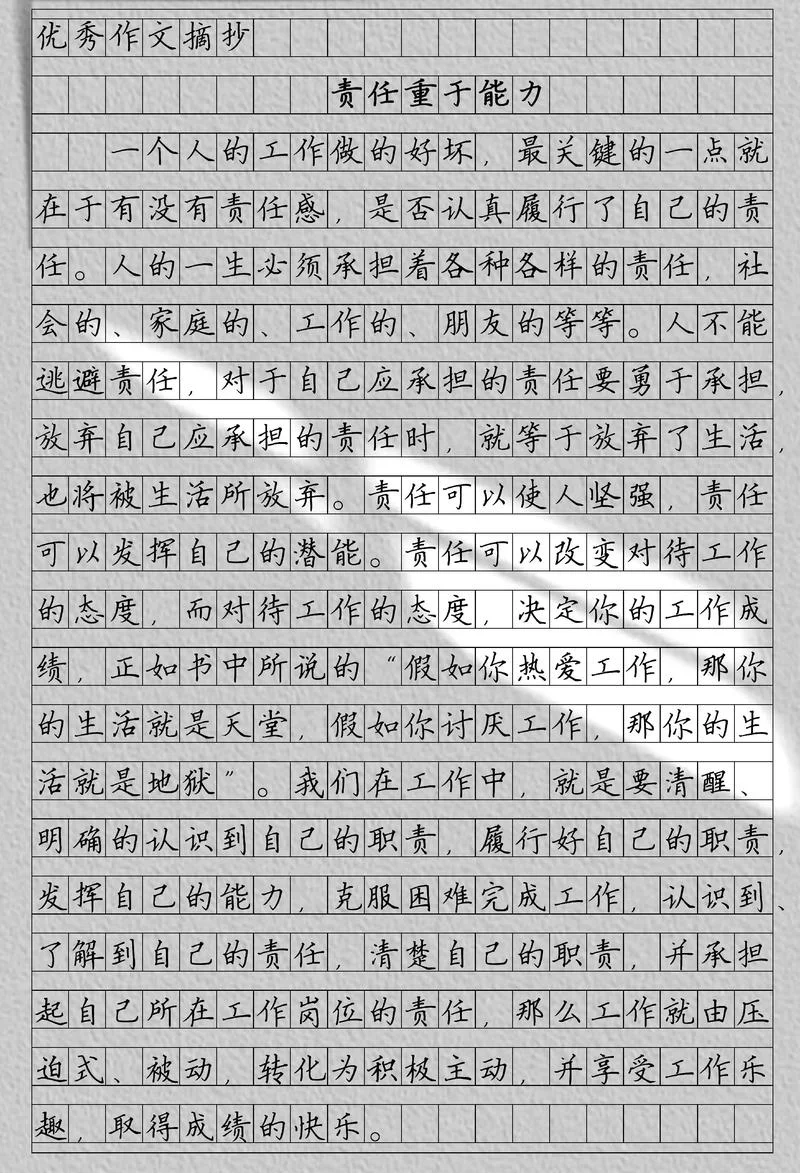 优秀作文摘抄
责任重于能力
一个人的工作做的好坏，最关键的一点就
在于有没有责任感，是否认真履行了自己的责
任。人的一生必须承担着各种各样的责任，社
会的、家庭的、工作的、朋友的等等。人不能
逃避责任，对于自己应承担的责任要勇于承担，
放弃自己应承担的责任时，就等于放弃了生活，
也将被生活所放弃。责任可以使人坚强，责任
可以发挥自己的潜能。责任可以改变对待工作
的态度，而对待工作的态度，决定你的工作成
绩，正如书中所说的“假如你热爱工作，那你
的生活就是天堂，假如你讨厌工作，那你的生
活就是地狱”。我们在工作中，就是要清醒、
明确的认识到自己的职责，履行好自己的职责，
发挥自己的能力，克服困难完成工作，认识到、
了解到自己的责任，清楚自己的职责，并承担
起自己所在工作岗位的责任，那么工作就由压
迫式、被动，转化为积极主动，并享受工作乐
趣，取得成绩的快乐。